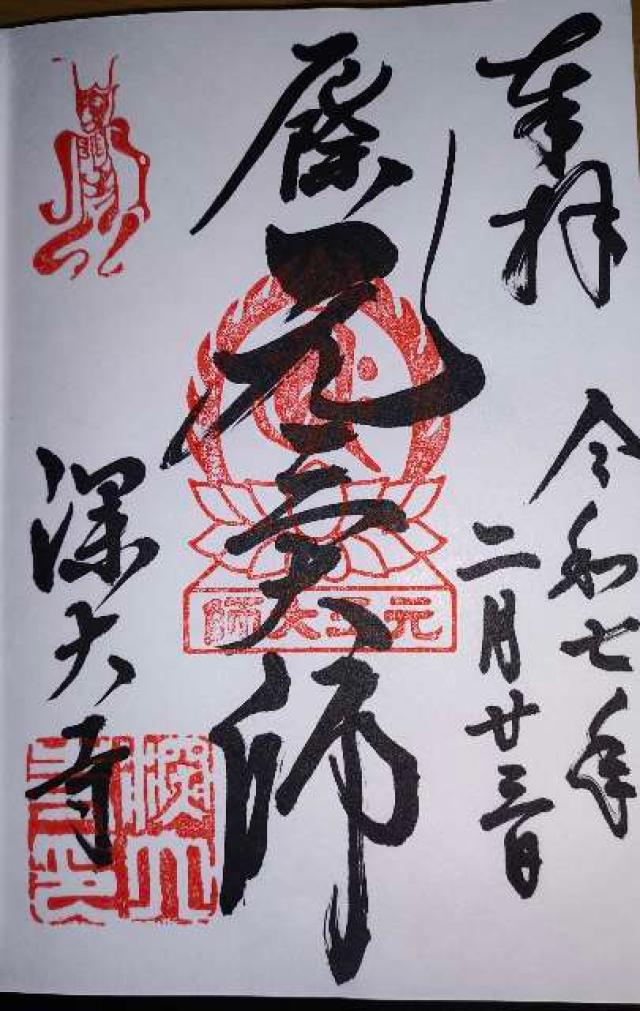 奉拝
令和七年
二月廿三日
厄除元三大師
元三大師
深大寺